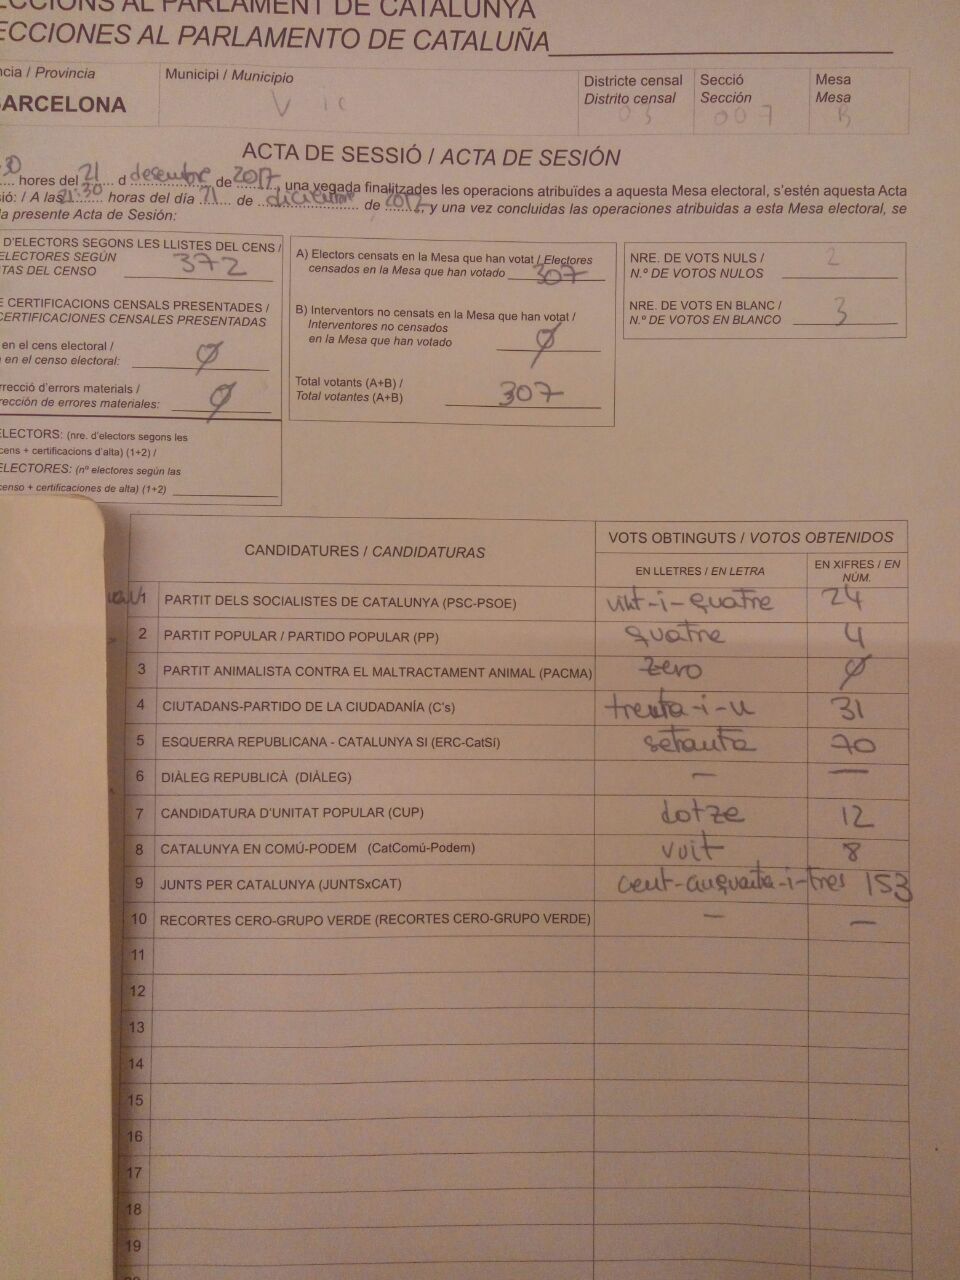 ECCIONS AL PARLAMENT DE CATALUNYA
ECCIONES AL PARLAMENTO DE CATALUÑA
ncia / Provincia
BARCELONA
Municipi / Municipio
Vic
Districte censal
Distrito censal
03
Secció
Sección
007
Mesa
Mesa
B
ACTA DE SESSIÓ / ACTA DE SESIÓN
30 hores del 21 d desembre de 2017, una vegada finalitzades les operacions atribuïdes a aquesta Mesa electoral, s'estén aquesta Acta
sió: / A las 21:30 horas del día 21 de diciembre de 2017, y una vez concluidas las operaciones atribuidas a esta Mesa electoral, se
la presente Acta de Sesión:
D'ELECTORS SEGONS LES LLISTES DEL CENS /
ELECTORES SEGÚN
TAS DEL CENSO 372
E CERTIFICACIONS CENSALS PRESENTADES /
CERTIFICACIONES CENSALES PRESENTADAS
en el cens electoral /
en el censo electoral: 0
rrecció d'errors materials /
rección de errores materiales: 0
ELECTORS: (nre. d'electors segons les
cens + certificacions d'alta) (1+2) /
ELECTORES: (nº electores según las
censo + certificaciones de alta) (1+2)
A) Electors censats en la Mesa que han votat / Electores
censados en la Mesa que han votado 307
B) Interventors no censats en la Mesa que han votat /
Interventores no censados
en la Mesa que han votado 0
Total votants (A+B) /
Total votantes (A+B) 307
NRE. DE VOTS NULS /
N.º DE VOTOS NULOS 2
NRE. DE VOTS EN BLANC /
N.º DE VOTOS EN BLANCO 3
CANDIDATURES / CANDIDATURAS
VOTS OBTINGUTS / VOTOS OBTENIDOS
EN LLETRES / EN LETRA
EN XIFRES / EN
NÚM.
1 PARTIT DELS SOCIALISTES DE CATALUNYA (PSC-PSOE) vint-i-quatre 24
2 PARTIT POPULAR / PARTIDO POPULAR (PP) quatre 4
3 PARTIT ANIMALISTA CONTRA EL MALTRACTAMENT ANIMAL (PACMA) zero 0
4 CIUTADANS-PARTIDO DE LA CIUDADANÍA (C's) trenta-i-u 31
5 ESQUERRA REPUBLICANA - CATALUNYA SI (ERC-CatSí) setanta 70
6 DIÀLEG REPUBLICÀ (DIÀLEG) — —
7 CANDIDATURA D'UNITAT POPULAR (CUP) dotze 12
8 CATALUNYA EN COMÚ-PODEM (CatComú-Podem) vuit 8
9 JUNTS PER CATALUNYA (JUNTSxCAT) cent-cinquanta-i-tres 153
10 RECORTES CERO-GRUPO VERDE (RECORTES CERO-GRUPO VERDE) — —
11
12
13
14
15
16
17
18
19